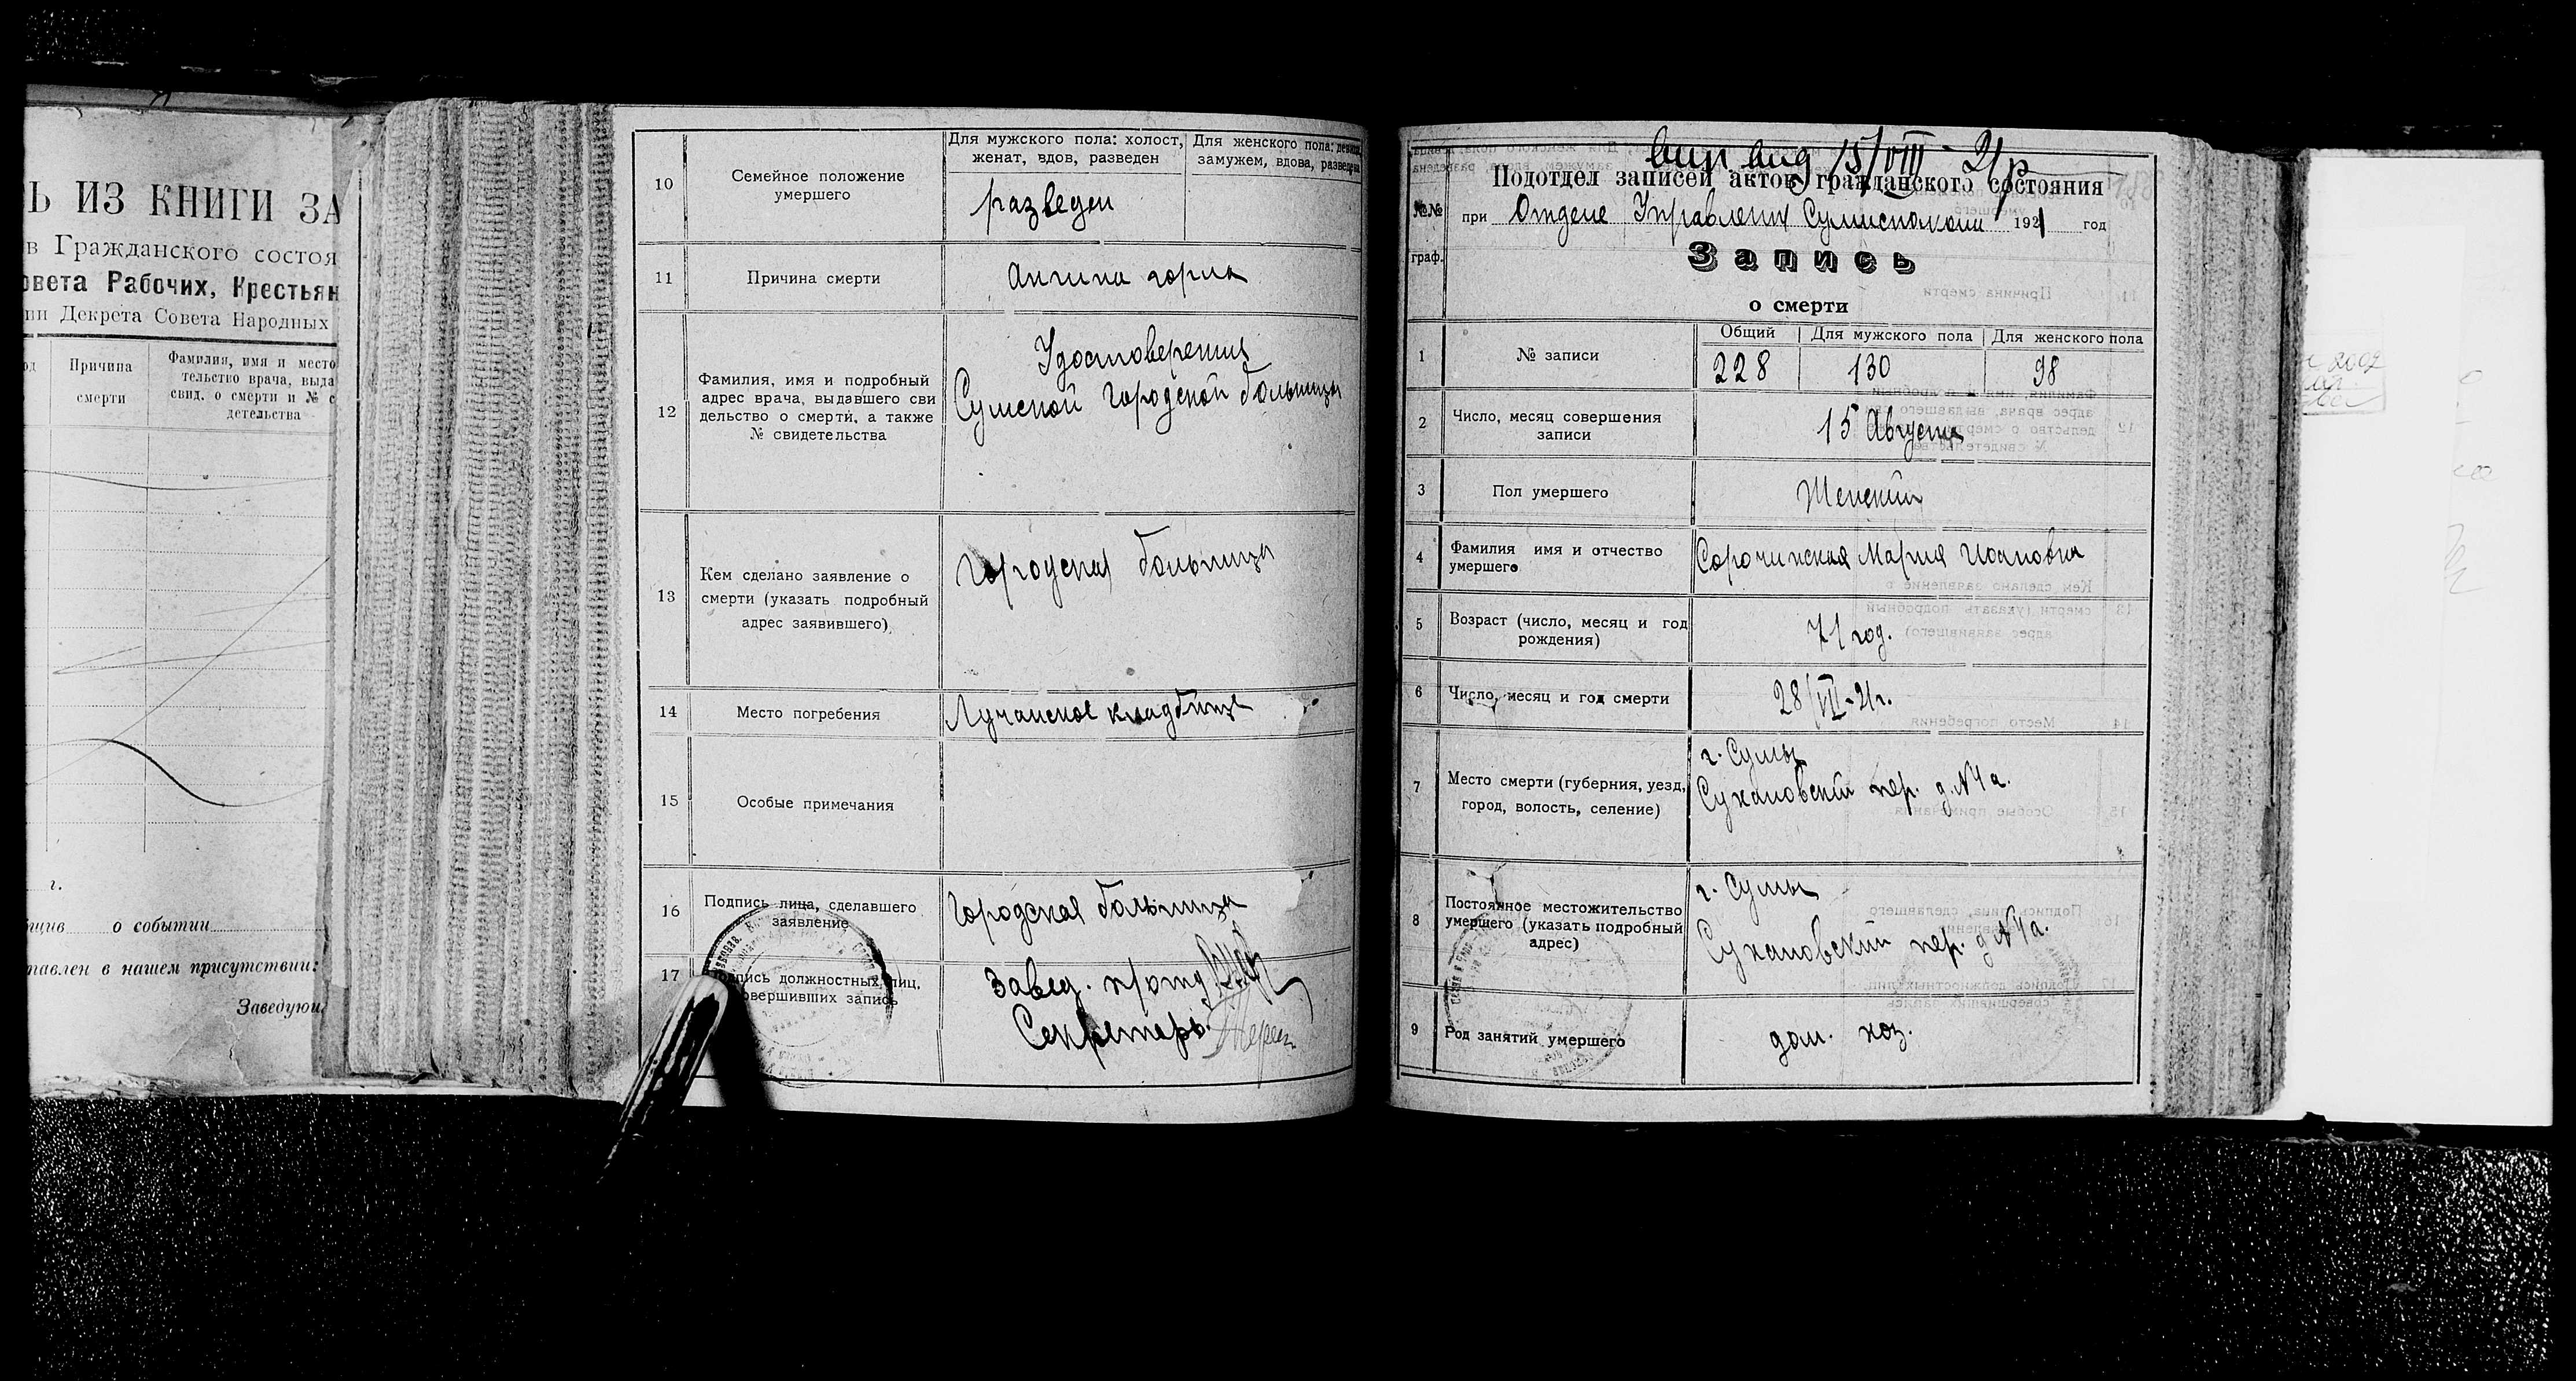 Ь ИЗ КНИГИ ЗА
в Гражданского состоя
овета Рабочих, Крестьян
ии Декрета Совета Народных
Причина
смерти
Фамилия, имя и место
тельство врача, выда
свид. о смерти и № с
детельства
г.
о событии
тавлен в нашем присутствии:
Заведующ
10
Семейное положение
умершего
Для мужского пола: холост,
женат, вдов, разведен
Для женского пола: девица,
замужем, вдова, разведена
разведен
11
Причина смерти
Ангина горла
12
Фамилия, имя и подробный
адрес врача, выдавшего сви
дельство о смерти, а также
№ свидетельства
Удостоверения
Сумской городской больницы
13
Кем сделано заявление о
смерти (указать подробный
адрес заявившего)
Городская больница
14
Место погребения
Лучанское кладбище
15
Особые примечания
16
Подпись лица, сделавшего
заявление
Городская больница
17
Подпись должностных лиц,
совершивших запись
Завед. п/отд
Секретарь
вид 15/VIII-21р
Подотдел записей актов гражданского состояния
№№
граф.
при Отделе Управления Сумисполкома 1921 год
Запись
о смерти
1
№ записи
Общий
Для мужского пола
Для женского пола
228
130
98
2
Число, месяц совершения
записи
15 Августа
3
Пол умершего
Женский
4
Фамилия имя и отчество
умершего
Сорочинская Мария Ивановна
5
Возраст (число, месяц и год
рождения)
71 год.
6
Число, месяц и год смерти
28/VII-21г.
7
Место смерти (губерния, уезд,
город, волость, селение)
г. Сумы
Сухановский пер. д. №4а.
8
Постоянное местожительство
умершего (указать подробный
адрес)
г. Сумы
Сухановский пер. д №4а.
9
Род занятий умершего
дом. хоз.